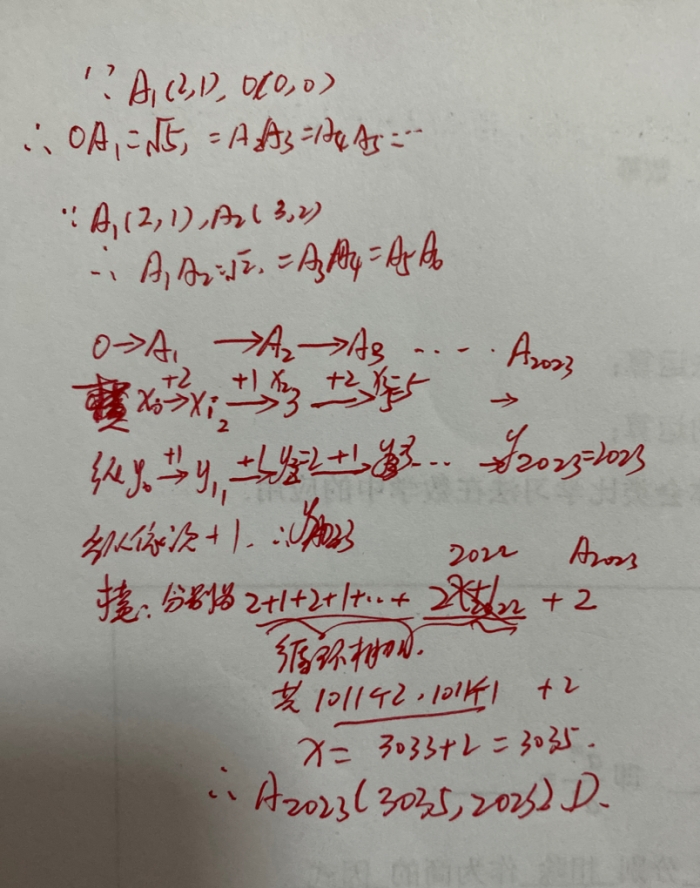 ∵ A₁(2,1), O(0,0)
∴ OA₁=√5, =A₂A₃=A₄A₅=…
∵ A₁(2,1), A₂(3,2)
∴ A₁A₂=√2. =A₃A₄=A₅A₆
O→A₁ →A₂→A₃ ⋯⋯ A₂₀₂₃
横 x₀ +2→ x₁=2 +1→ x₂ 3 +2→ x₃=5 →
纵 y₀ +1→ y₁ 1 +1→ y₂=2 +1→ y₃=3 ⋯ → y₂₀₂₃=2023
纵依次+1. ∴y₂₀₂₃
2022 A₂₀₂₃
横: 分别为 2+1+2+1+⋯+ 2+1 + 2
循环相加.
共1011个2, 1011个1 +2
x= 3033+2=3035.
∴ A₂₀₂₃(3035,2023) D.